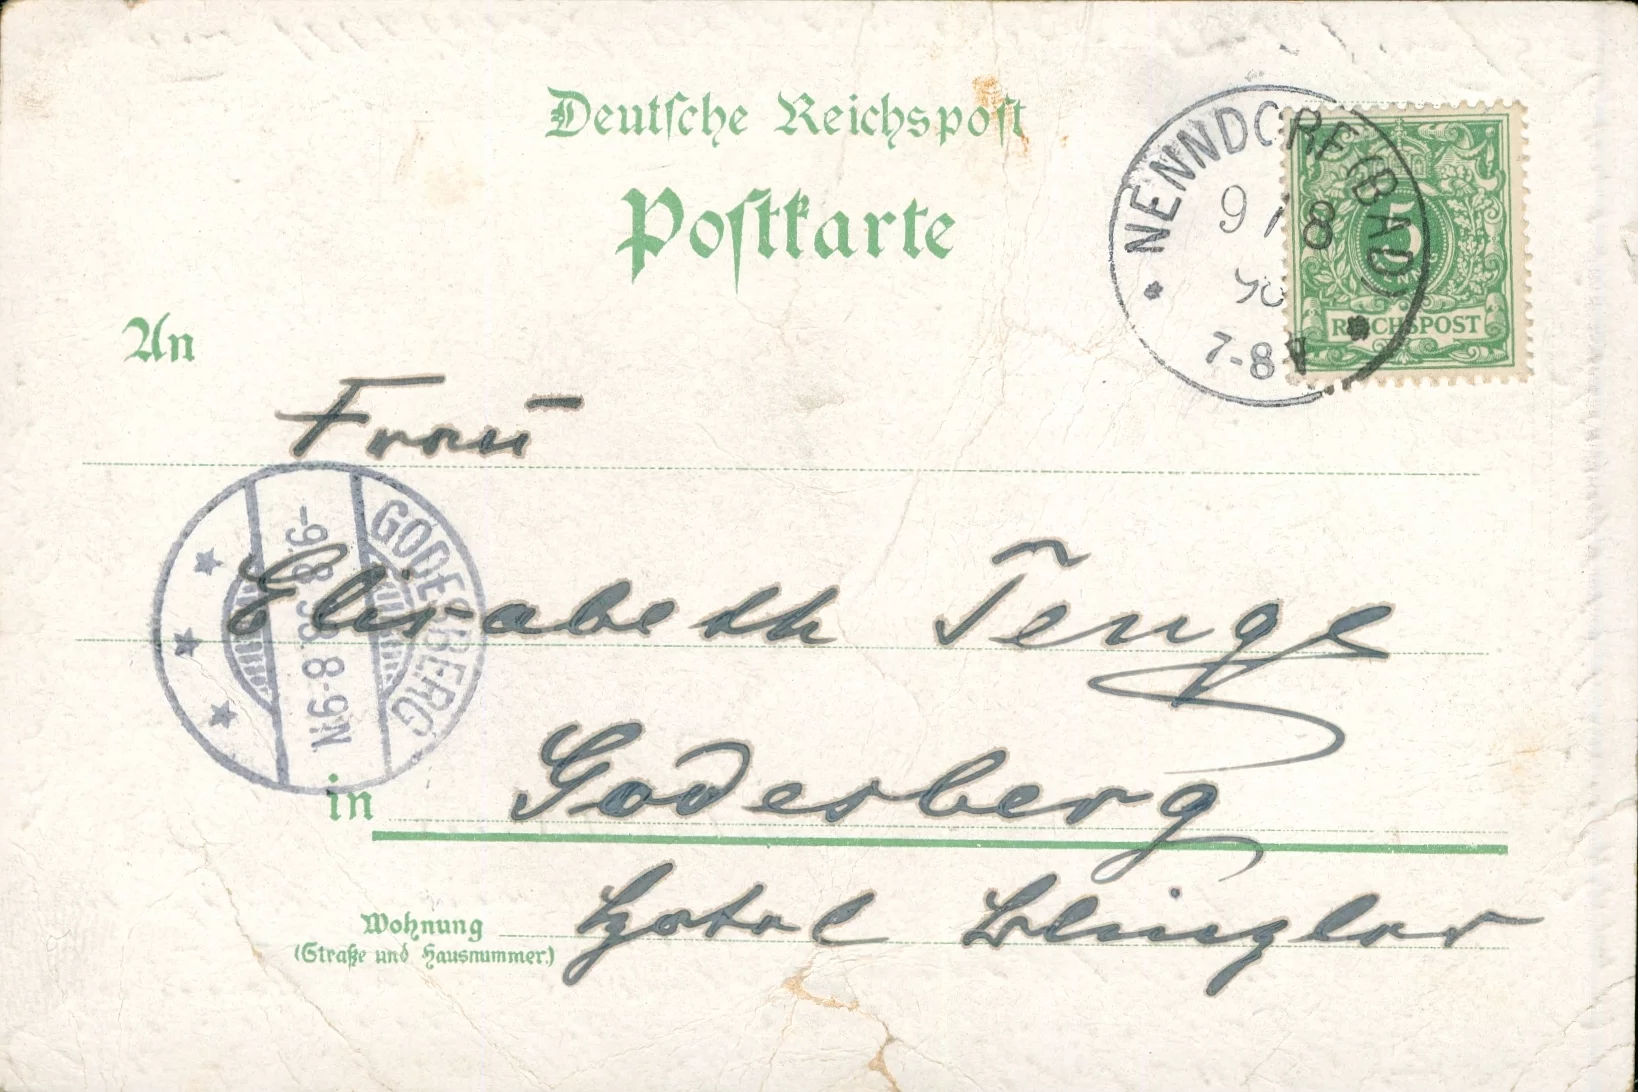 Deutsche Reichspost
Postkarte
NENNDORF (BAD)
9 / 8
98
7-8 V
5
REICHSPOST
An
Frau
Elisabeth Tenge
GODESBERG
-9.8.98. 8-9N.
in Godesberg
Wohnung
(Straße und Hausnummer)
Hotel Blinzler